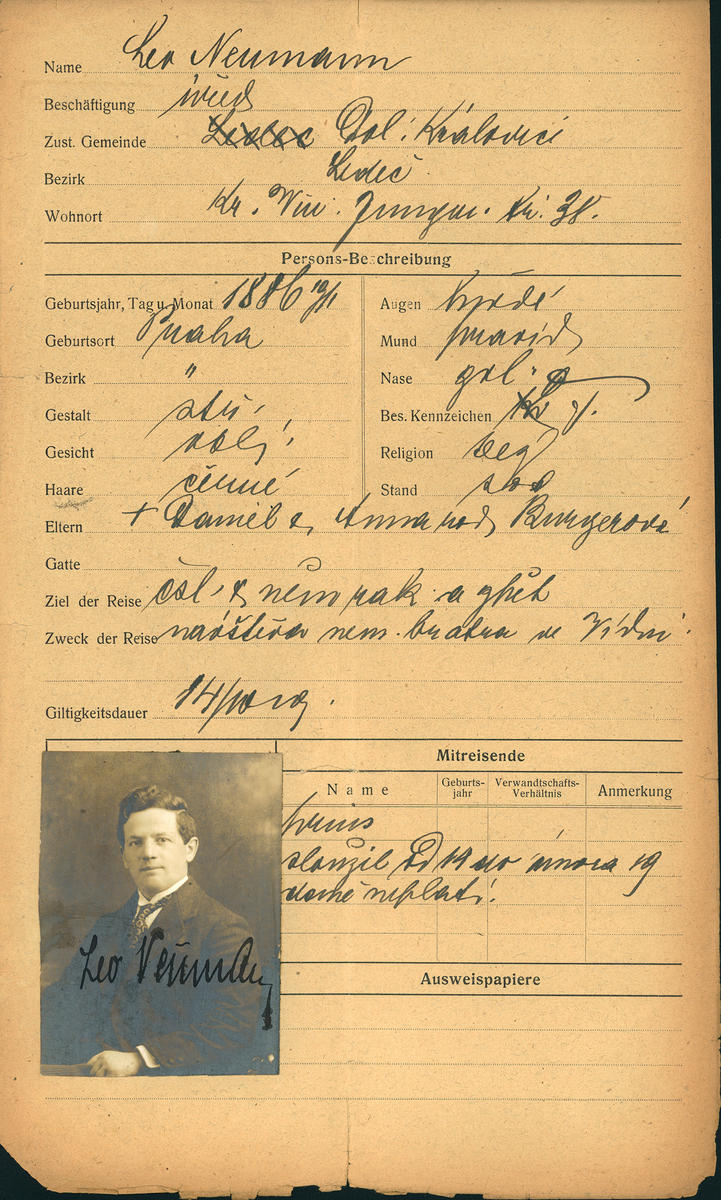 Name Leo Neumann
Beschäftigung úřed
Zust. Gemeinde Ledec Dol. Královici
Bezirk Ledeč
Wohnort Kr. Vin. Jungm. 38.
Persons-Beschreibung
Geburtsjahr, Tag u. Monat 1886
Geburtsort Praha
Bezirk "
Gestalt stř.
Gesicht obl.
Haare černé
Augen hnědé
Mund pravid
Nase
Bes. Kennzeichen
Religion
Stand svob
Eltern + Daniel a Anna rod. Burgerová
Gatte
Ziel der Reise čsl. a něm rak
Zweck der Reise návštěva nem. bratra ve Vídni.
Giltigkeitsdauer 14/
Mitreisende
Name
Geburts-jahr
Verwandtschafts-Verhältnis
Anmerkung
sloužil od 14 do února 19
daně neplatí.
Leo Neumann
Ausweispapiere